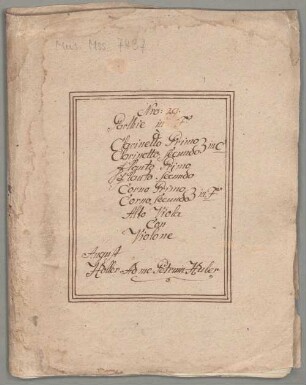 Mus. Mss. 7437
Nro: 24
Parthie in F
à
Clarinetto Primo
Clarinetto, secundo } in C
Flauto Primo
Flauto secundo
Corno Primo
Corno, secundo } in F
Alto Viola
Con
Violone
August
Holler Ad me Petrum Huber